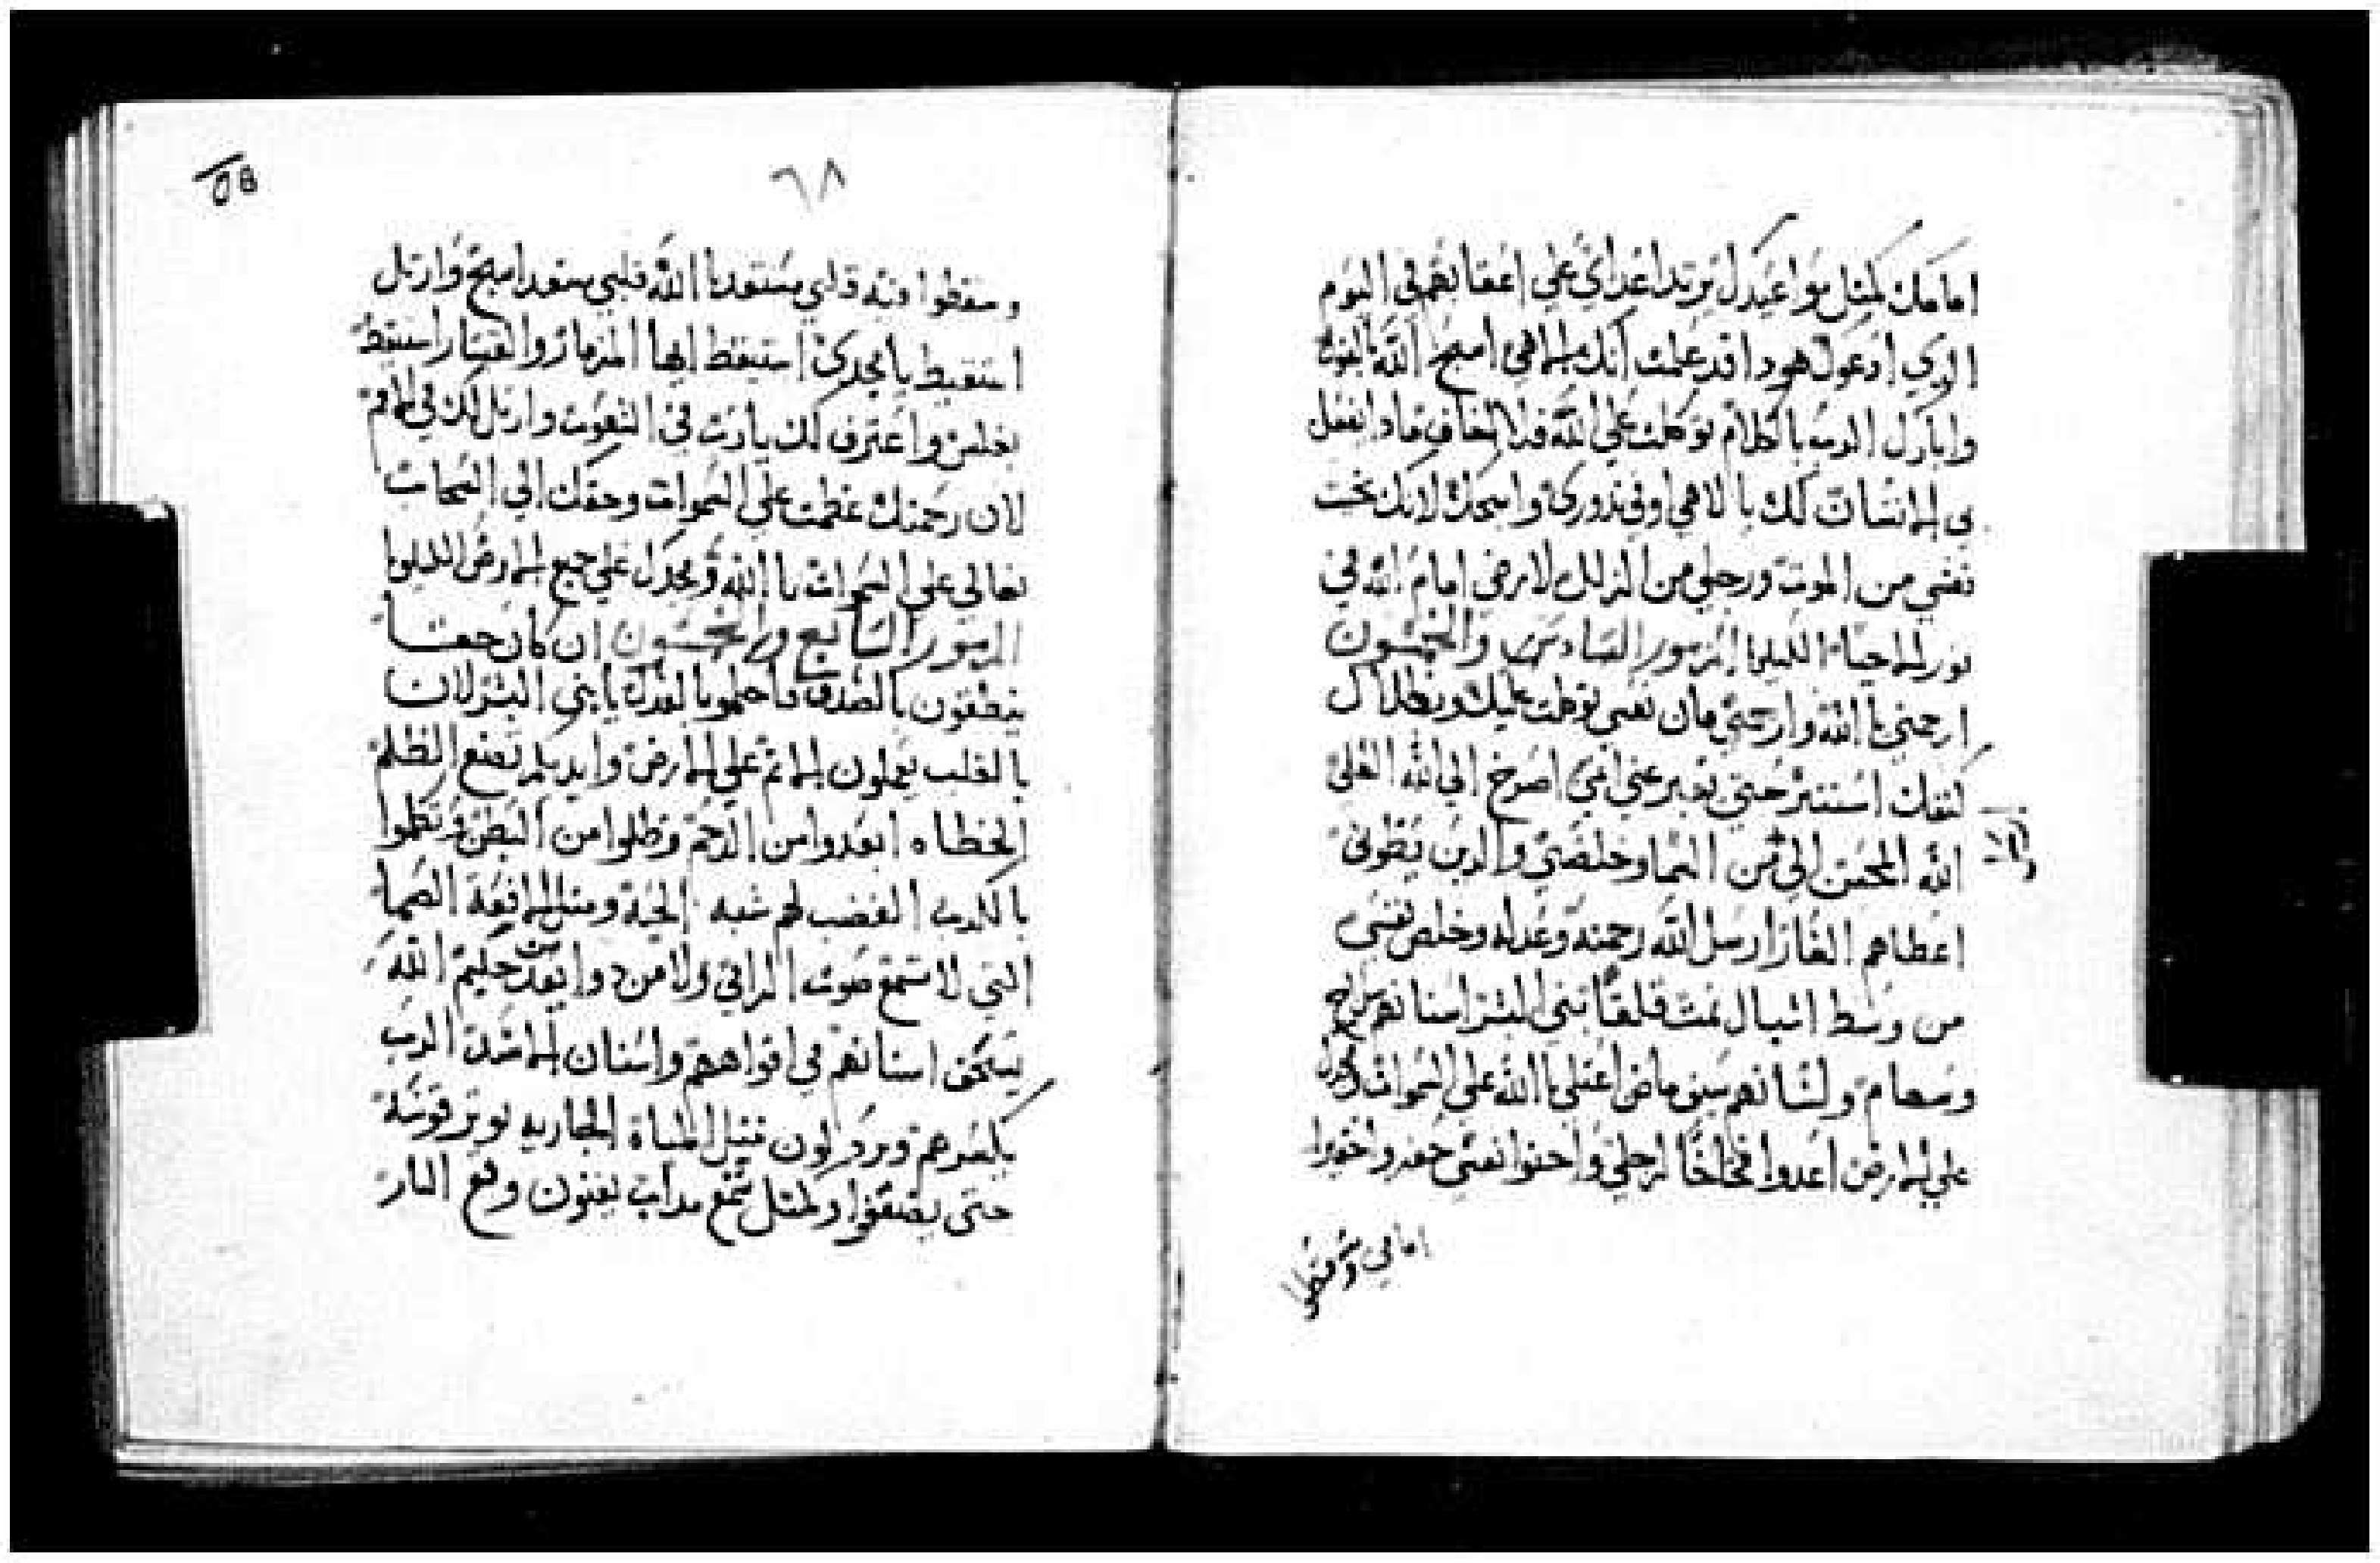 امامك كمثل مواعيدك ترتد اعداي علي اعقابهم في اليوم
الدي ادعوك هودا قد علمت انك الاهي اسبح الله بالقول
وابارك الرب بالكلام توكلت علي الله فلا اخاف مادا يفعل
بى الانسان لك يا الاهي اوفي ندورى واسبحك لانك نجيت
نفسي من الموت ورجلي من الزلل لارضي امام الله في
نور الاحيا الليلويا المزمور السادس والخمسون
ارحمني يا الله وارحمني فان نفسى توكلت عليك وبظلال
كنفك استتر حتي يعبر عني اصرخ الي الله العلي
الله المحسن الي من السما وخلصني والدين يطوني
اعطاهم العار ارسل الله رحمته وعدله وخلص نفسي
من وسط اشبال نمت قلقا بني البشر اسنانهم سلاح
وسهام ولسانهم سيف ماض اعتلي يا الله علي السموات ومجدك
علي الارض اعدوا فخاخا لرجلي واحنوا نفسي حفروا حفيرا
امامي وسقطوا
٦٨
وسقطوا فيه قلبي مستعد يا الله قلبي مستعد اسبح وارتل
استيقيط يا مجدى استيقظ ايها المزمار والقيتار استيقظ
بغلس واعترف لك يارب في الشعوب وارتل لك في الامم
لان رحمتك عظمت علي السموات وحقك الي السحاب
تعالي علي السموات يا الله ومجدك علي جميع الارض الليلويا
المزمور السابع والخمسون ان كان حقا
ينطقون بالصدق فاحكموا بالعدل يا بني البشر لان
بالقلب يعملون الاثم علي الارض وايديكم تصنع الظلم
الخطاه ابعدوا من الرحم وضلوا من البطن وتكلموا
بالكدب الغضب لهم شبه الحية ومثل الافعة الصما
التي لا تسمع صوت الراقي ولا من دوا يعد من حكيم الله
يسحق اسنانهم في افواههم واسنان الاسد الرب
يكسرهم ويردلون مثل المياة الجاريه يوتر قوسة
حتى يضعفوا ومثل شمع مداب يفنون وقع النار